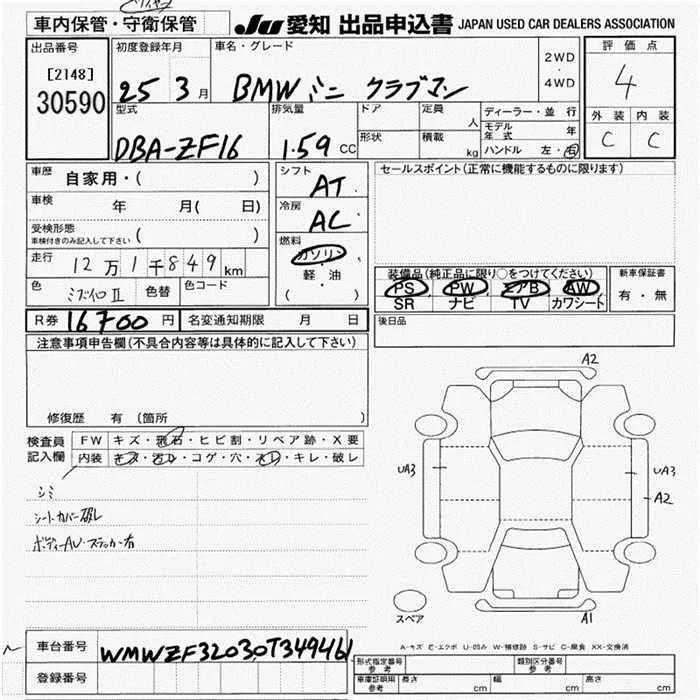 車内保管・守衛保管
JU 愛知 出品申込書 JAPAN USED CAR DEALERS ASSOCIATION
出品番号
[2148]
30590
初度登録年月
25 3月
車名・グレード
BMW ミニ クラブマン
2WD
・
4WD
評価点
4
外装 内装
C C
型式
DBA-ZF16
排気量
1.59 CC
ドア
形状
定員
人
積載
kg
ディーラー・並行
モデル年式 年
ハンドル 左・右
車歴
自家用・( )
車検
年 月( 日)
受検形態
車検付きのみ記入して下さい ( )
走行
12万1千849km
色
ミズイロⅡ
色替
色コード
シフト
AT
冷房
AC
燃料
ガソリン
・
軽・油
( )
セールスポイント(正常に機能するものに限ります)
装備品(純正品に限り○をつけてください)
PS PW エアB AW
SR ナビ TV カワシート
新車保証書
有・無
R券 16700円
名変通知期限 月 日
後日品
注意事項申告欄(不具合内容等は具体的に記入して下さい)
修復歴 有 (箇所 )
検査員
記入欄
FW キズ・飛石・ヒビ割・リペア跡・X要
内装 キズ・汚レ・コゲ・穴・スレ・キレ・破レ
シミ
シートカバー破レ
ボディーAU・ステッカー有
A2
UA3
UA3
A2
A1
スペア
A-キズ E-エクボ U-凹み W-補修跡 S-サビ C-腐食 XX-交換済
車台番号
WMWZF32030T349461
登録番号
形式指定番号
参考
類別区分番号
参考
車庫証明用
参考
長さ cm
幅 cm
高さ cm